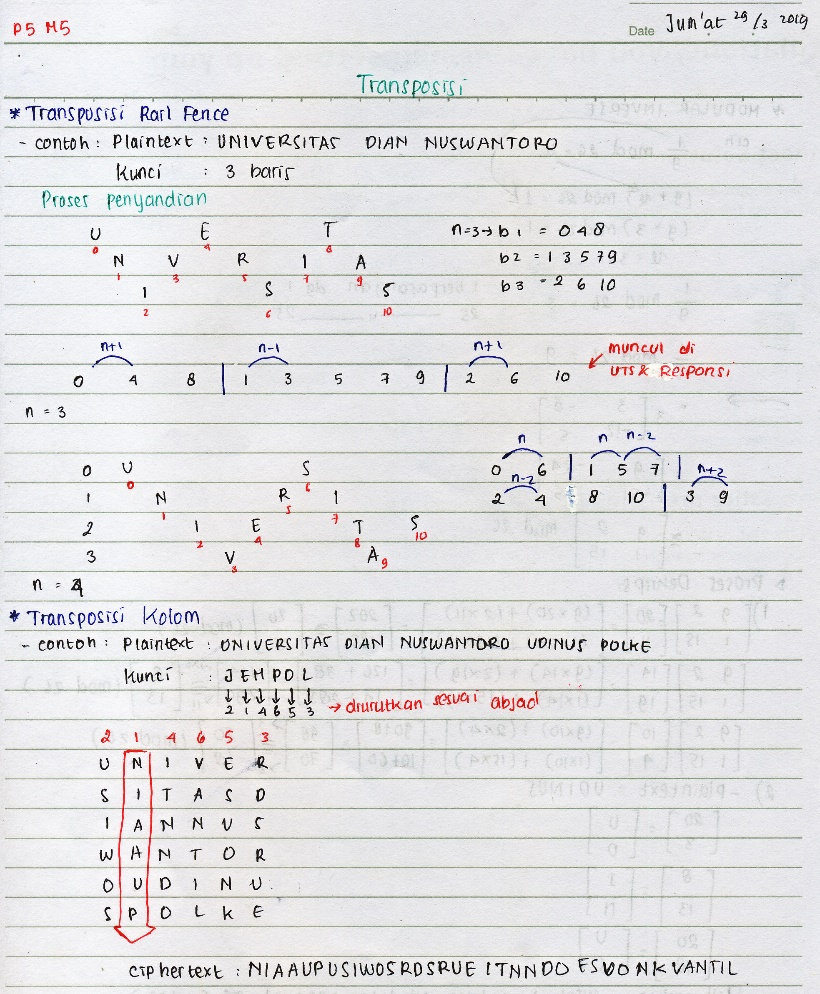 P5 M5
Date Jum'at 29/3 2019
Transposisi
* Transposisi Rail Fence
- contoh : Plaintext : UNIVERSITAS DIAN NUSWANTORO
Kunci : 3 baris
Proses penyandian
U E T n=3→ b1 = 0 4 8
0 4 8
N V R I A b2 = 1 3 5 7 9
1 3 5 7 9
I S S b3 = 2 6 10
2 6 10
n+1 n-1 n+1 muncul di
0 4 8 | 1 3 5 7 9 | 2 6 10 UTS & Responsi
n = 3
n n n-2
0 U S 0 6 | 1 5 7 |
0 6 n-2 n+2
1 N R I 2 4 8 10 | 3 9
1 5 7
2 I E T S
2 4 8 10
3 V A
3 9
n = 4
* Transposisi Kolom
- contoh : Plaintext : UNIVERSITAS DIAN NUSWANTORO UDINUS POLKE
Kunci : JEMPOL
↓↓↓↓↓↓
2 1 4 6 5 3 → diurutkan sesuai abjad
2 1 4 6 5 3
U N I V E R
S I T A S D
I A N N U S
W A N T O R
O U D I N U
S P O L K E
Ciphertext : NIAAUPUSIWOSRDSRUE ITNNDO ESUONKVANTIL